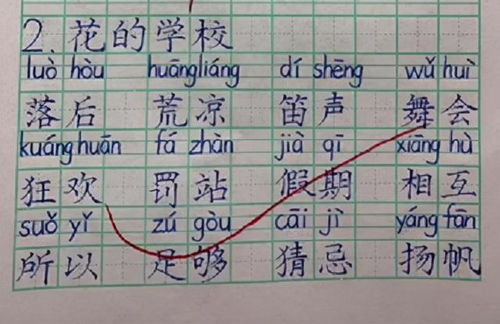 2. 花的学校
luò hòu huāngliáng dí shēng wǔ huì
落后 荒凉 笛声 舞会
kuánghuān fá zhàn jià qī xiāng hù
狂欢 罚站 假期 相互
suǒ yǐ zú gòu cāi jì yáng fān
所以 足够 猜忌 扬帆